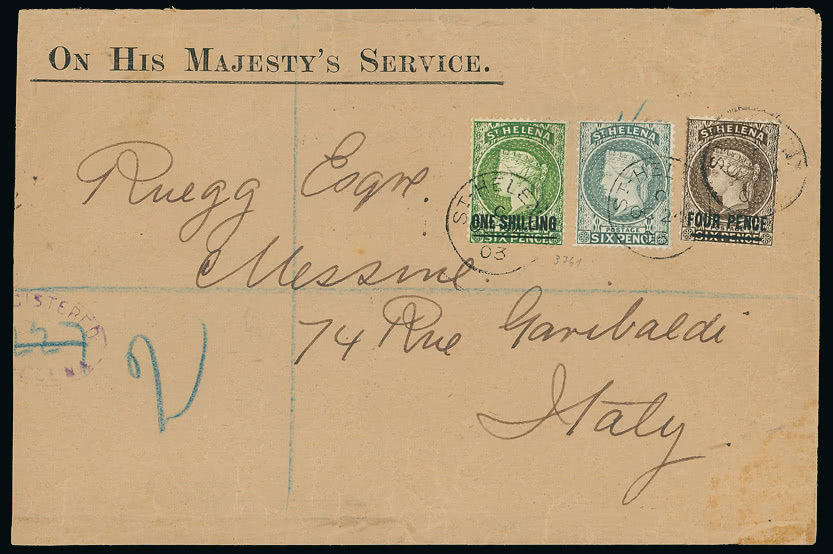 ON HIS MAJESTY'S SERVICE.
ST HELENA
ONE SHILLING
SIX PENCE
ST HELENA
POSTAGE
SIX PENCE
ST HELENA
FOUR PENCE
SIX PENCE
ST. HELE
03
ST. HEL
Ruegg Esqre.
Messine.
74 Rue Garibaldi
Italy.
3761
GISTERED
227